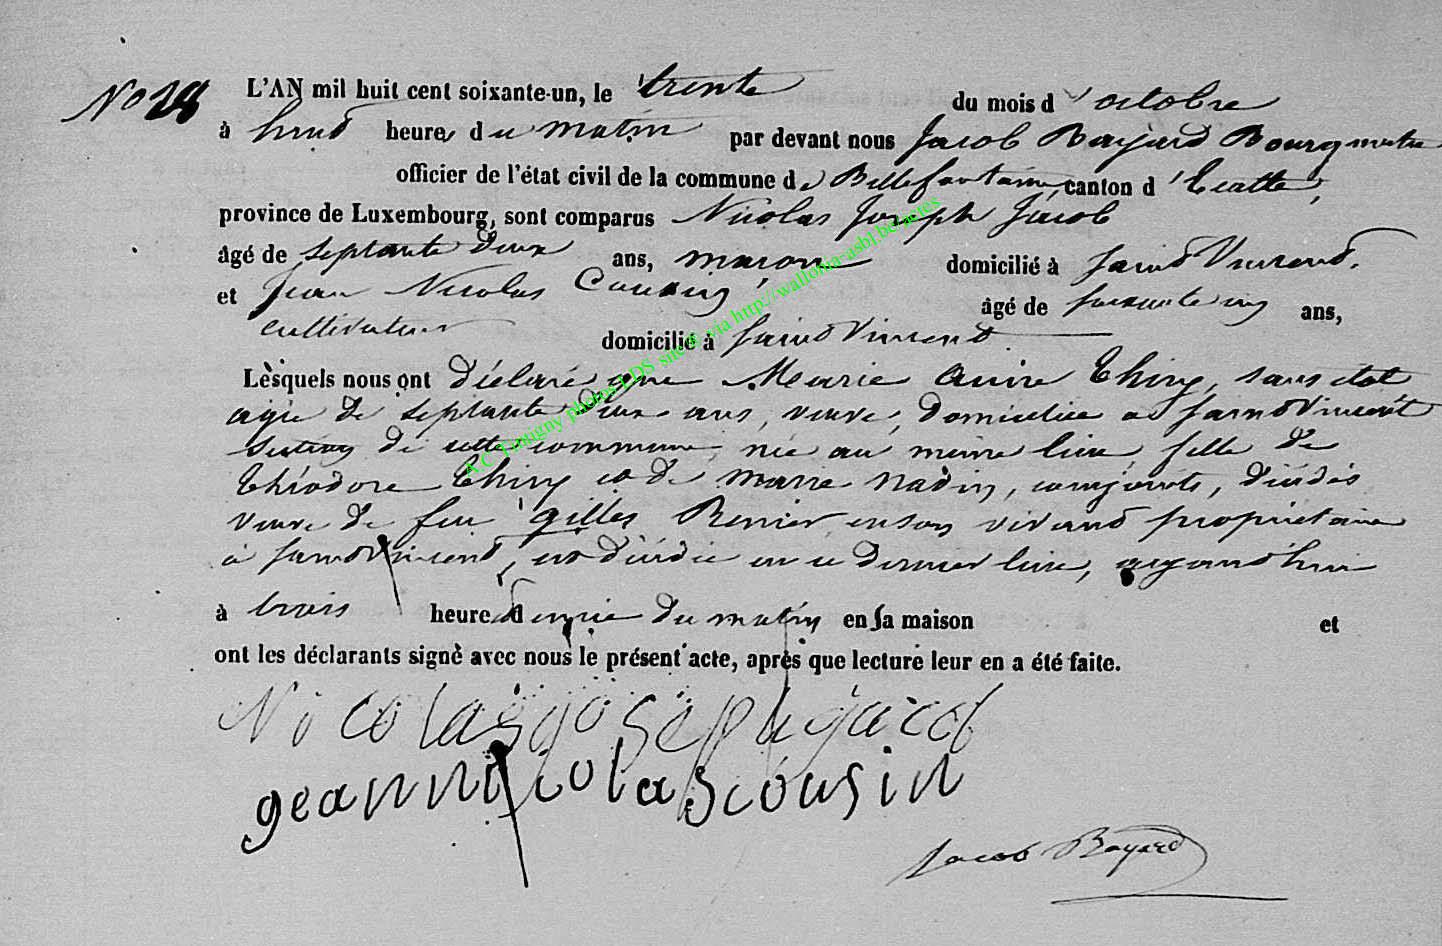 No 28
L'AN mil huit cent soixante-un, le trente du mois d'octobre
à huit heures du matin par devant nous Jacob Bayard Bourgmestre
officier de l'état civil de la commune de Bellefontaine, canton d'Etalle,
province de Luxembourg, sont comparus Nicolas Joseph Jacob
âgé de septante deux ans, maçon domicilié à Saint Vincent,
et Jean Nicolas Cousin âgé de soixante cinq ans,
cultivateur domicilié à Saint Vincent
Lesquels nous ont déclaré que Marie Anne Thiry, sans état
agée de septante deux ans, veuve, domiciliée à Saint Vincent
section de cette commune, née au même lieu fille de
Théodore Thiry et de Marie Nadin, conjoints, décédés
veuve de feu Gilles Renier en son vivant propriétaire
à Saint Vincent, est décédée en ce dernier lieu, aujourd'hui
à trois heures demie du matin en sa maison et
ont les déclarants signé avec nous le présent acte, après que lecture leur en a été faite.
Nicolas joseph jacob
geannicolascousin
Jacob Bayard
A.C. Tintigny photos LDS sncdr via http://wallonia-asbl.be/actes